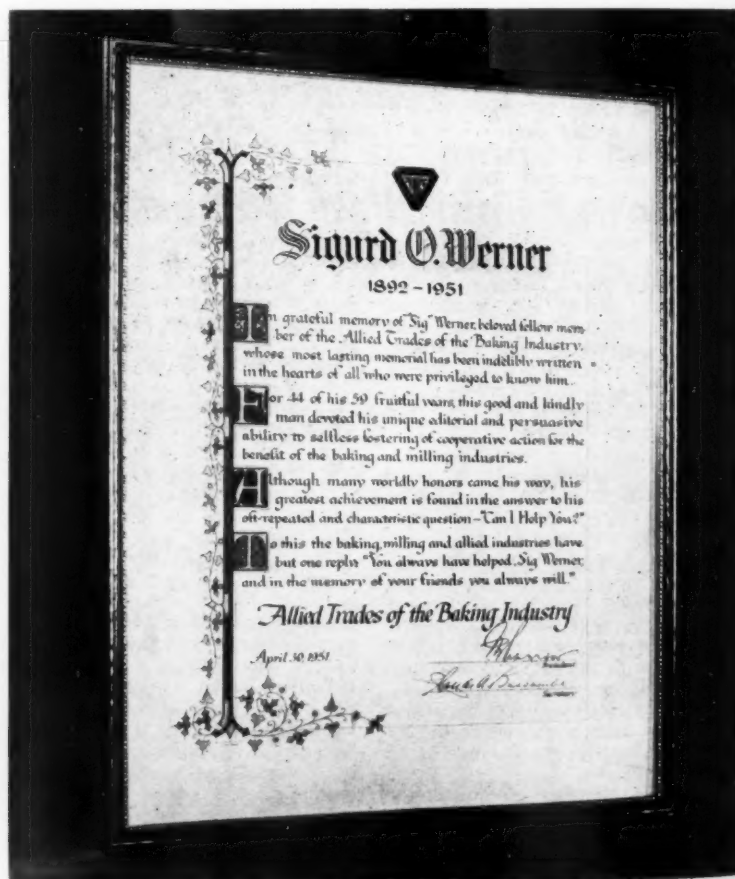 Sigurd O. Werner
1892 - 1951
In grateful memory of "Sig" Werner, beloved fellow mem-
ber of the Allied Trades of the Baking Industry,
whose most lasting memorial has been indelibly written
in the hearts of all who were privileged to know him.
For 44 of his 59 fruitful years, this good and kindly
man devoted his unique editorial and persuasive
ability to selfless fostering of cooperative action for the
benefit of the baking and milling industries.
Although many worldly honors came his way, his
greatest achievement is found in the answer to his
oft-repeated and characteristic question - "Can I Help You?"
To this the baking, milling and allied industries have
but one reply: "You always have helped, Sig Werner,
and in the memory of your friends you always will."
Allied Trades of the Baking Industry
April 30, 1951